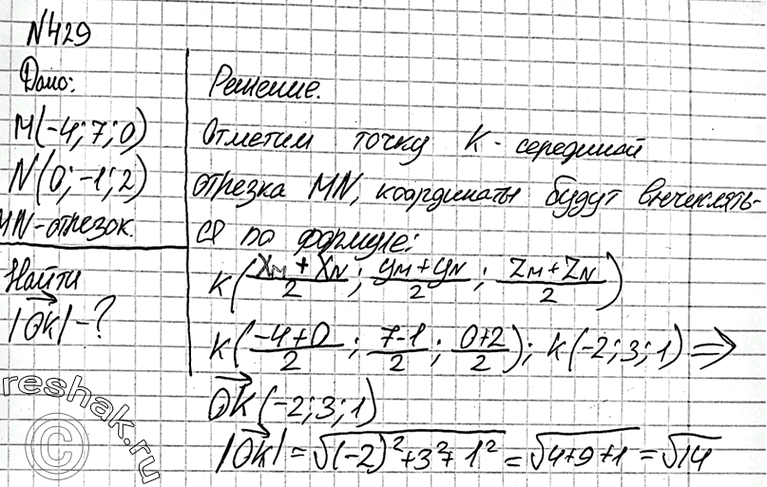 N429
Дано:
M(-4; 7; 0)
N(0; -1; 2)
MN-отрезок.
Найти
|OK| - ?
Решение.
Отметим точку K - серединой
отрезка MN, координаты будут вычислять-
ся по формуле:
K((x_M + x_N)/2; (y_M + y_N)/2; (z_M + z_N)/2)
K((-4+0)/2; (7-1)/2; (0+2)/2); K(-2; 3; 1) ⇒
OK(-2; 3; 1)
|OK| = √((-2)² + 3² + 1²) = √(4+9+1) = √14
reshak.ru
©